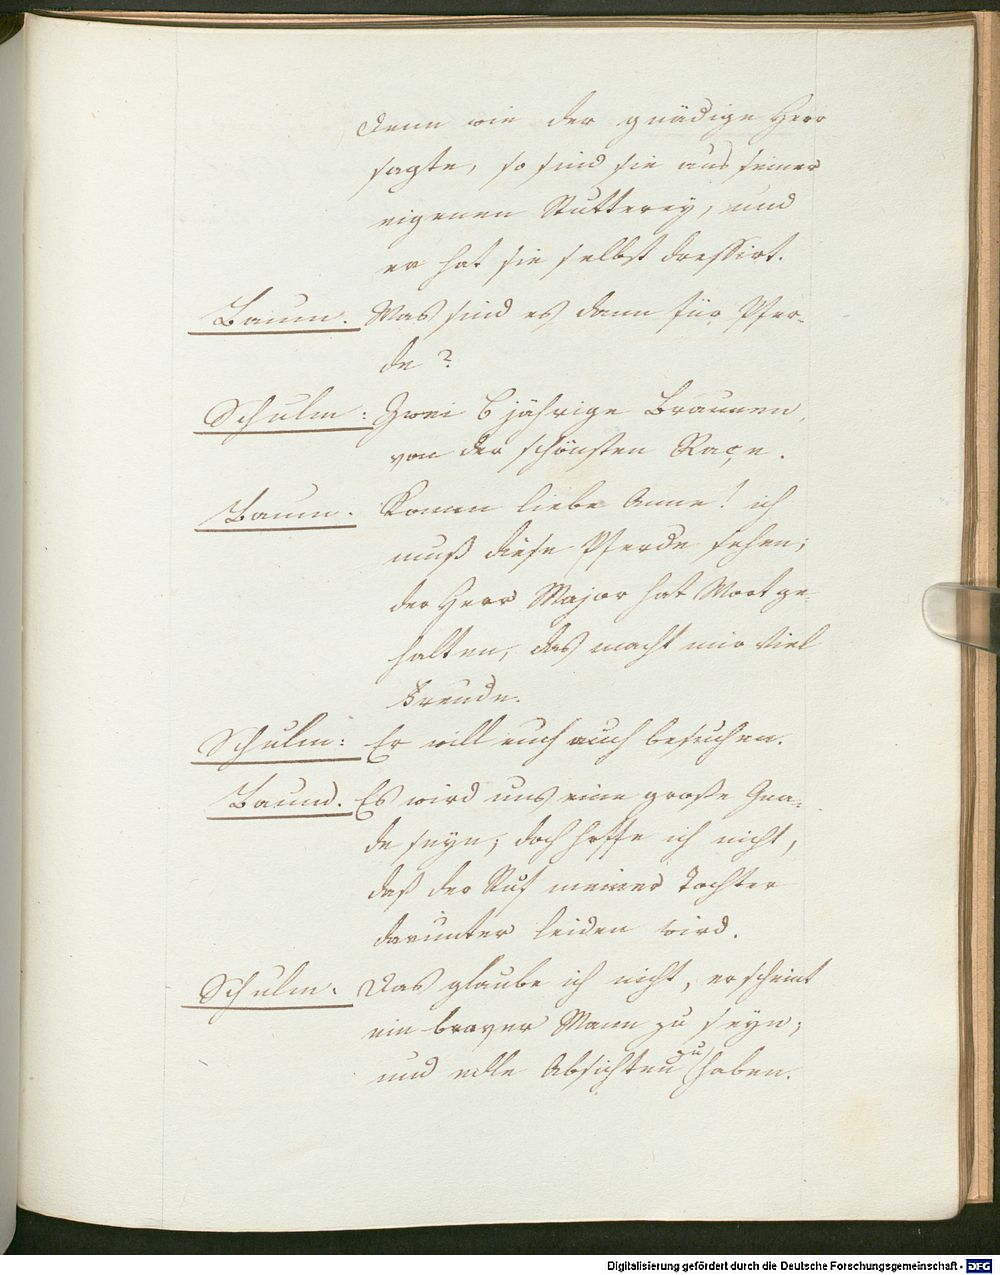 denn wie der gnädige Herr
sagte, so sind sie aus seiner
eigenen Stutterey, und
er hat sie selbst dressirt.
Baum. Was sind es dann für Pfer-
de?
Schulm: Zwei 6 jährige Braunen,
von der schönsten Raçe.
Baum. Komm liebe Anne! ich
muß diese Pferde sehen;
der Herr Major hat Wort ge-
halten, das macht mir viel
Freude.
Schulm: Er will euch auch besuchen.
Baum. Es wird uns eine große Gna-
de seyn; doch hoffe ich nicht,
daß der Ruf meiner Tochter
darunter leiden wird.
Schulm: Das glaube ich nicht, er scheint
ein braver Mann zu seyn;
und edle Absichten zu haben.
Digitalisierung gefördert durch die Deutsche Forschungsgemeinschaft - DFG